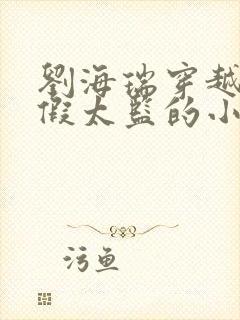 劉海瑞穿越
假太監的小
污鱼